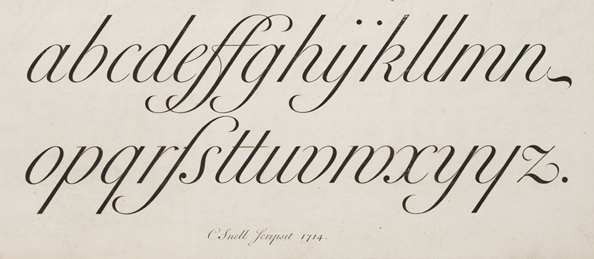 abcdeffghijkllmn
opqrſsttuvnwxyyz.
C Snell Scripsit 1714.